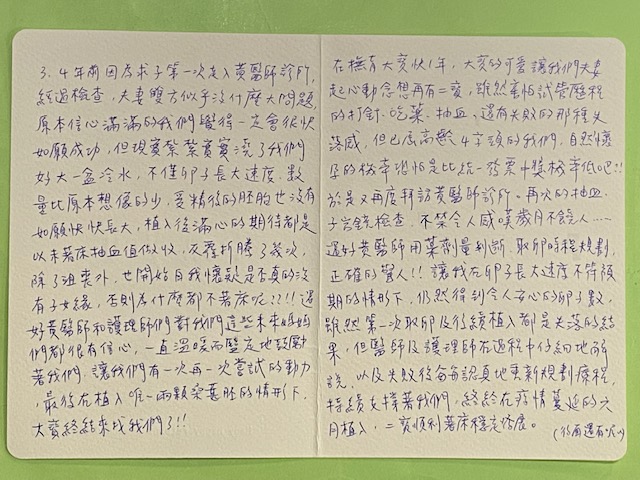 3、4年前因為求子第一次走入黃醫師診所,
經過檢查,夫妻雙方似乎沒什麼大問題,
原本信心滿滿的我們覺得一定會很快
如願成功,但現實紮紮實實澆了我們
好大一盆冷水,不僅卵子長大速度、數
量比原本想像的少,受精後的胚胎也沒有
如願快快長大,植入後滿心的期待都是
以未著床抽血值做收,反覆折騰了幾次,
除了沮喪外,也開始自我懷疑是否真的沒
有子女緣,否則為什麼都不著床呢???還
好黃醫師和護理師們對我們這些未來媽媽
們都很有信心,一直溫暖而堅定地鼓勵
著我們,讓我們有一次再一次嘗試的動力
,最後在植入唯一兩顆囊胚的情形下,
大寶終於來找我們了!!
在撫育大寶快1年,大寶的可愛讓我們夫妻
起心動念想再有二寶,雖然害怕試管歷程
的打針、吃藥、抽血、還有失敗的那種失
落感,但已屆高齡4字頭的我們,自然懷
孕的機率恐怕是比統一發票中獎機率低吧!!
於是又再度拜訪黃醫師診所,再次的抽血、
子宮鏡檢查,不禁令人感嘆歲月不饒人……
還好黃醫師用藥劑量判斷、取卵時程規劃,
正確的驚人!!讓我在卵子長大速度不等預
期的情形下,仍然得到令人安心的卵子數,
雖然第一次取卵及後續植入都是失落的結
果,但醫師及護理師在過程中仔細地解
說,以及失敗後每每認真地重新規劃療程,
持續支撐著我們,終於在疫情蔓延的六
月植入,二寶順利著床穩定發展。
(後面還有呢~)